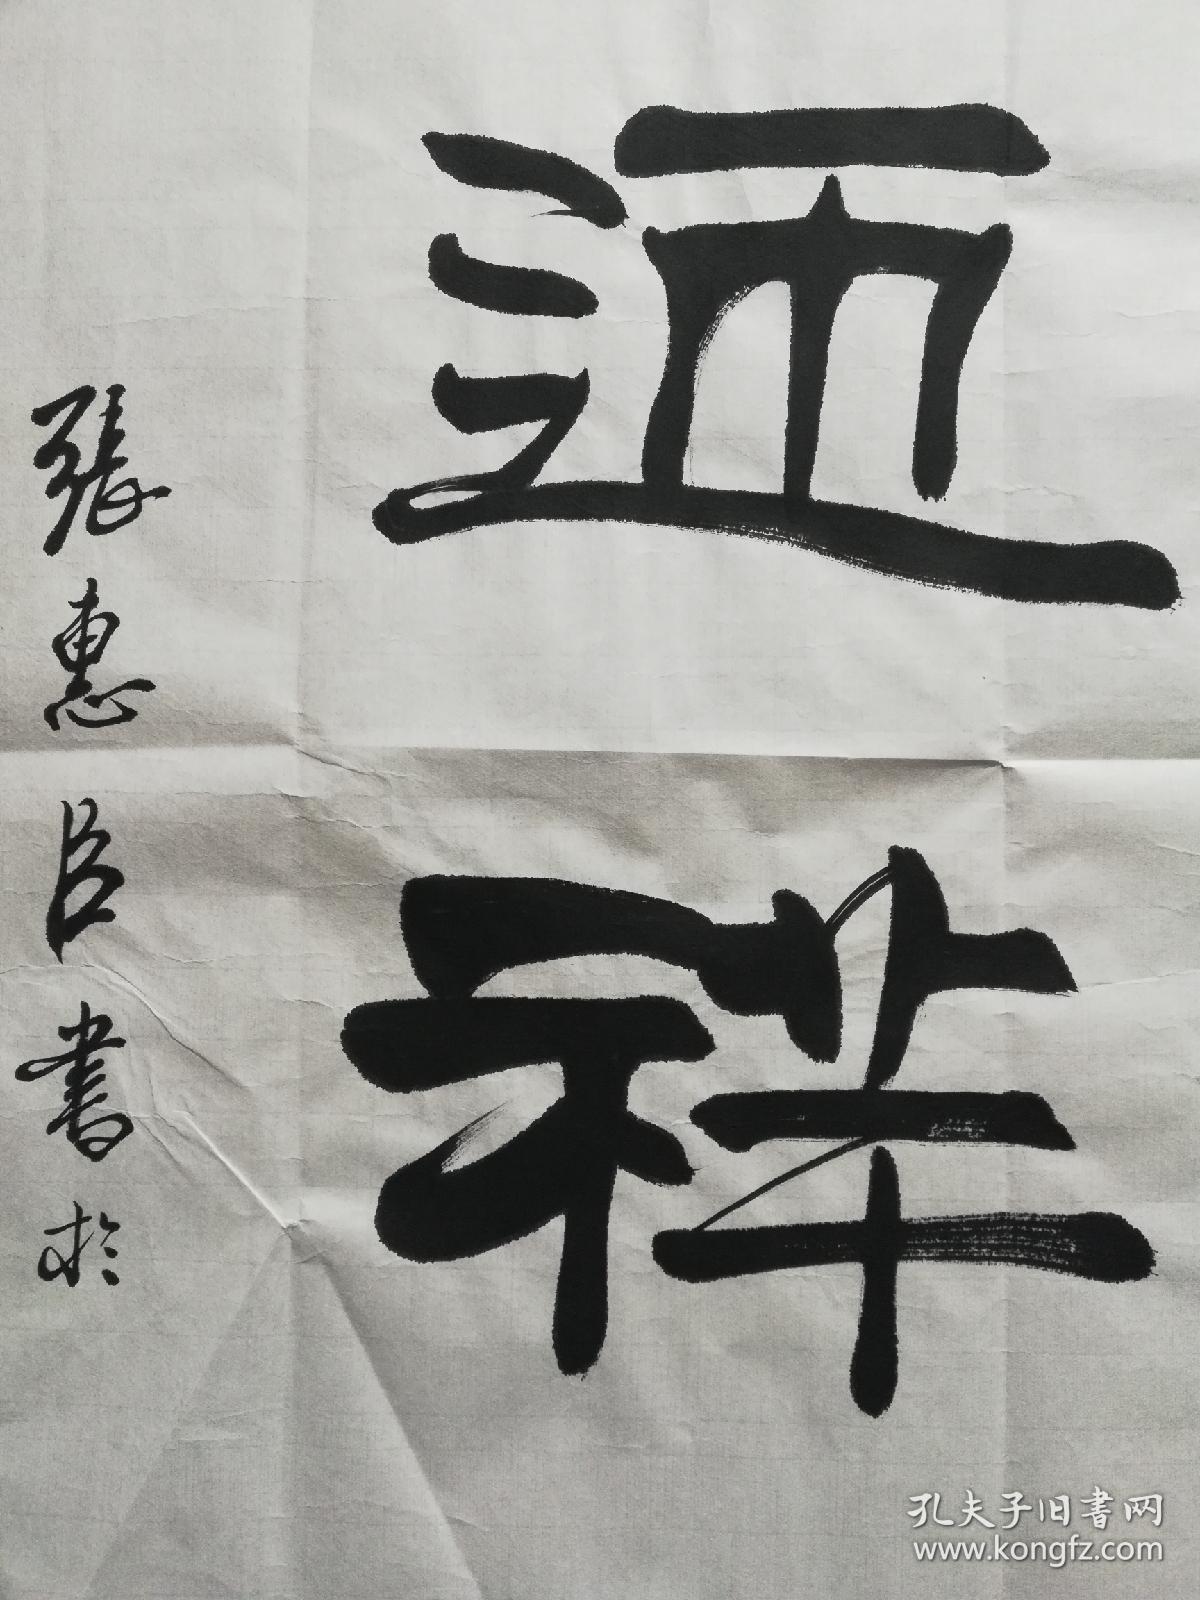 迎祥
張惠臣書於
孔夫子旧書网
www.kongfz.com